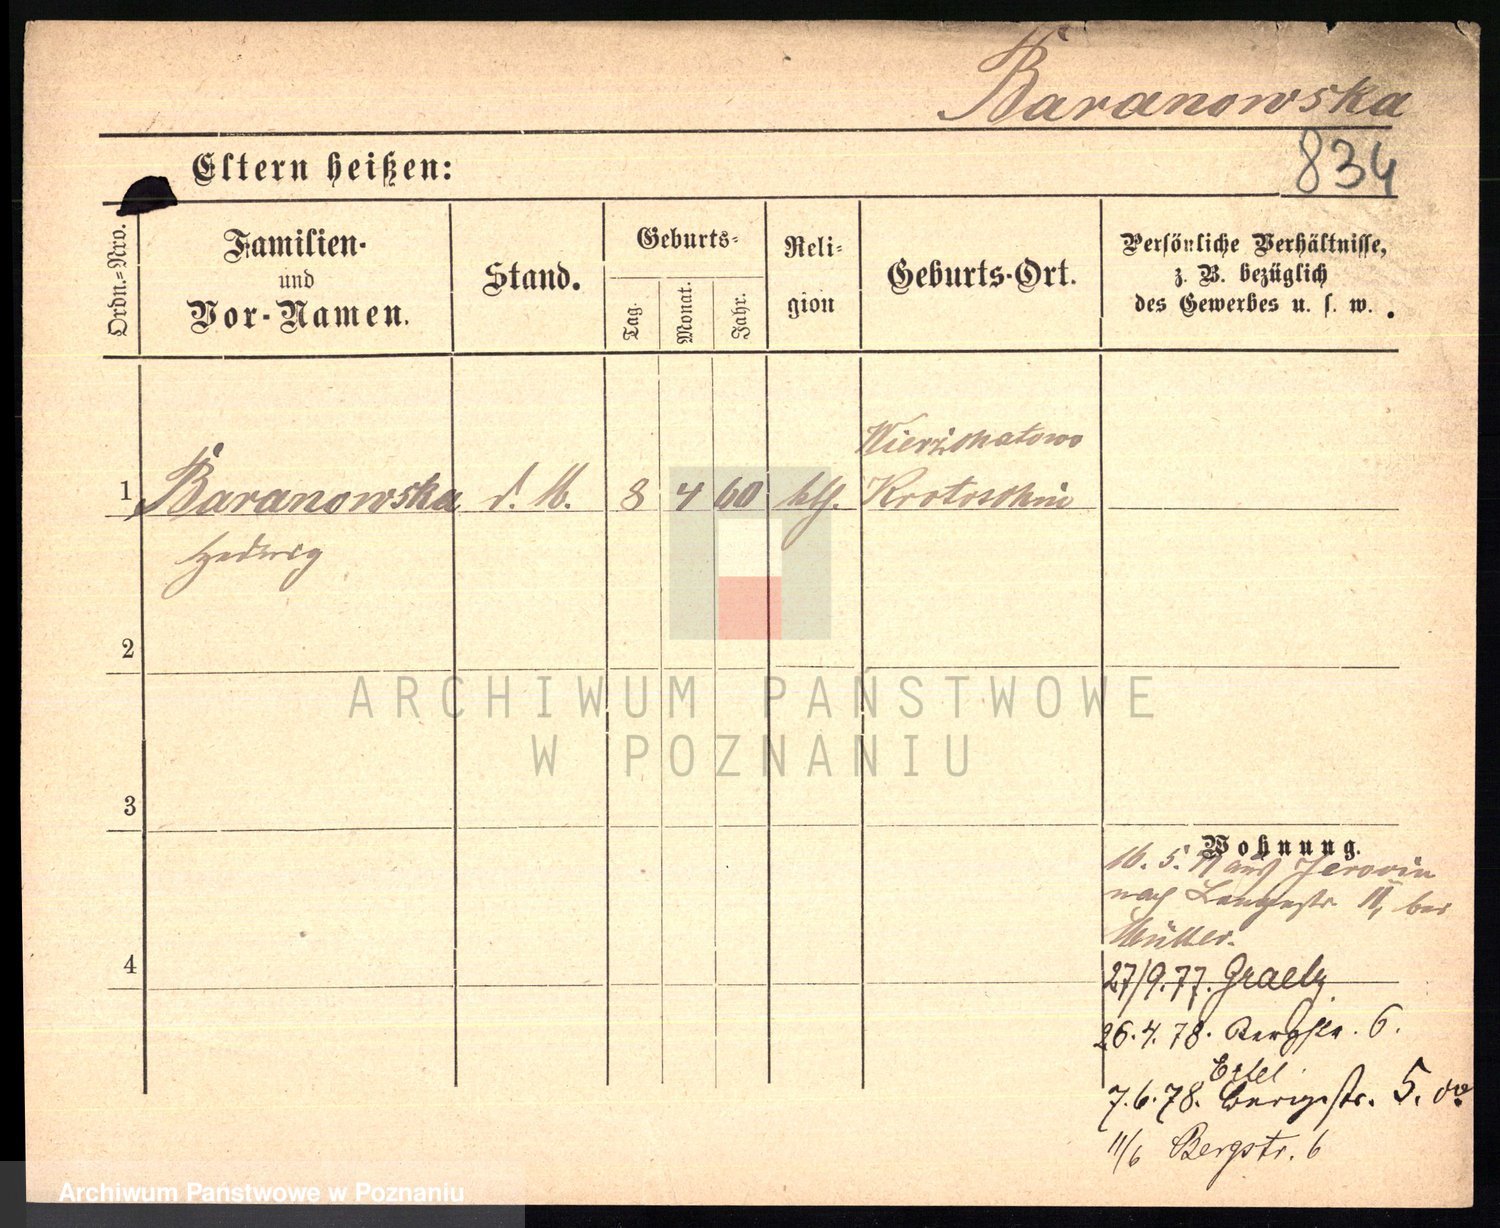 Baranowska
834
Eltern heißen:
Ordn.=Nro.
Familien-
und
Vor-Namen.
Stand.
Geburts-
Tag.
Monat.
Jahr.
Reli-
gion
Geburts-Ort.
Persönliche Verhältnisse,
z. B. bezüglich
des Gewerbes u. s. w.
1 Baranowska d. M. 8 4 60 Krotoschin
Hedwig
2
ARCHIWUM PAŃSTWOWE
W POZNANIU
3
Wohnung.
16. 5. aus
nach bei
Müller.
4
27/9.77. Graetz
26.4.78. Bergstr. 6.
7.6.78. 5.
11/6 Bergstr. 6
Archiwum Państwowe w Poznaniu